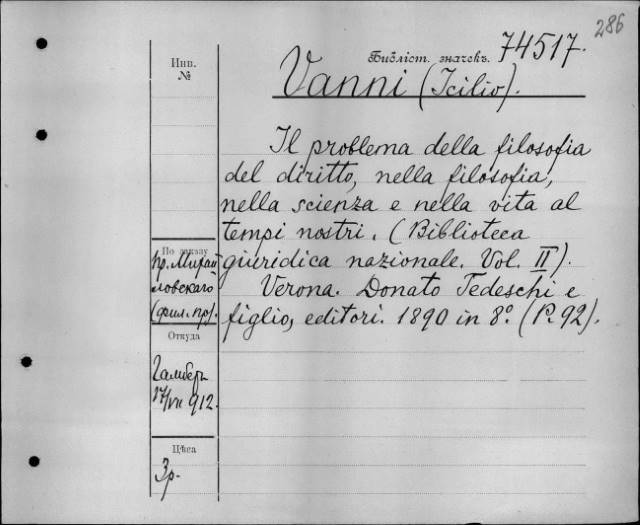 286
Библіот. значекъ. 74517.
Инв.
№
Vanni (Icilio).
Il problema della filosofia
del diritto, nella filosofia,
nella scienza e nella vita al
tempi nostri. (Biblioteca
giuridica nazionale. Vol. II).
Verona. Donato Tedeschi e
figlio, editori. 1890 in 8º. (P. 92).
По заказу
пр. Михай
ловскаго
(фил. пр).
Откуда
Гамберъ
17/VII 912.
Цѣна
3р.